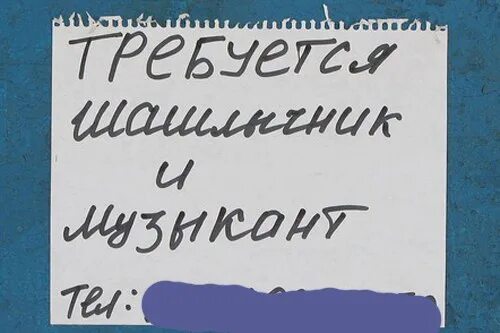 ТРЕБУЕТСЯ
шашлычник
и
музыкант
тел: